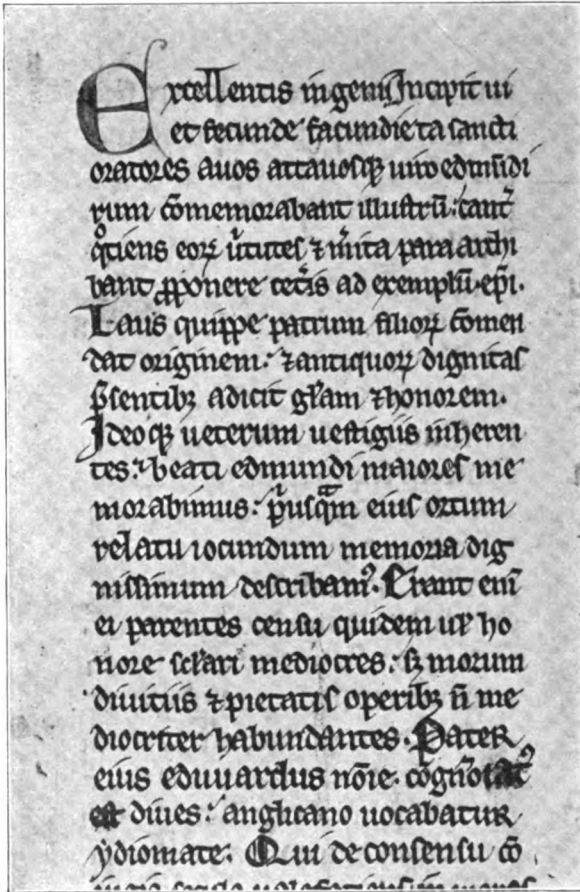 Excellentis ingenii Incipit ui
et fecunde facundie ta sancti
oratores auos attauosqꝫ uiro edmūdi
rum cōmemorabant illustrū: cant᷑
qͦtiens eorꝝ u᷑tutes ⁊ m᷑ita para archi
bant ꝓponere cet᷑is ad exemplū. ep̄i.
Laus quippe patrum filiorꝝ cōmen
dat originem: ⁊ antiquorꝝ dignitas
p̄sentibꝫ adicit gl̄am ⁊ honorem.
Ideoqꝫ ueterum uestigiis inheren
tes: beati edmundi maiores me
morabimus: pͥusq̄m eius ortum
relatu iocundum memoria dig
nissimum describamꝰ. Erant eni̅
ei parentes censu quidem ul̓ ho
nore scl̄ari mediocres: sꝫ morum
diuitiis ⁊ pietatis operibꝫ n̄ me
diocriter habundantes. Pater
eius eduuardus nōie. cogno̅tatꝰ
est diues: anglicano uocabatur
ydiomate. Qui de consensu cō